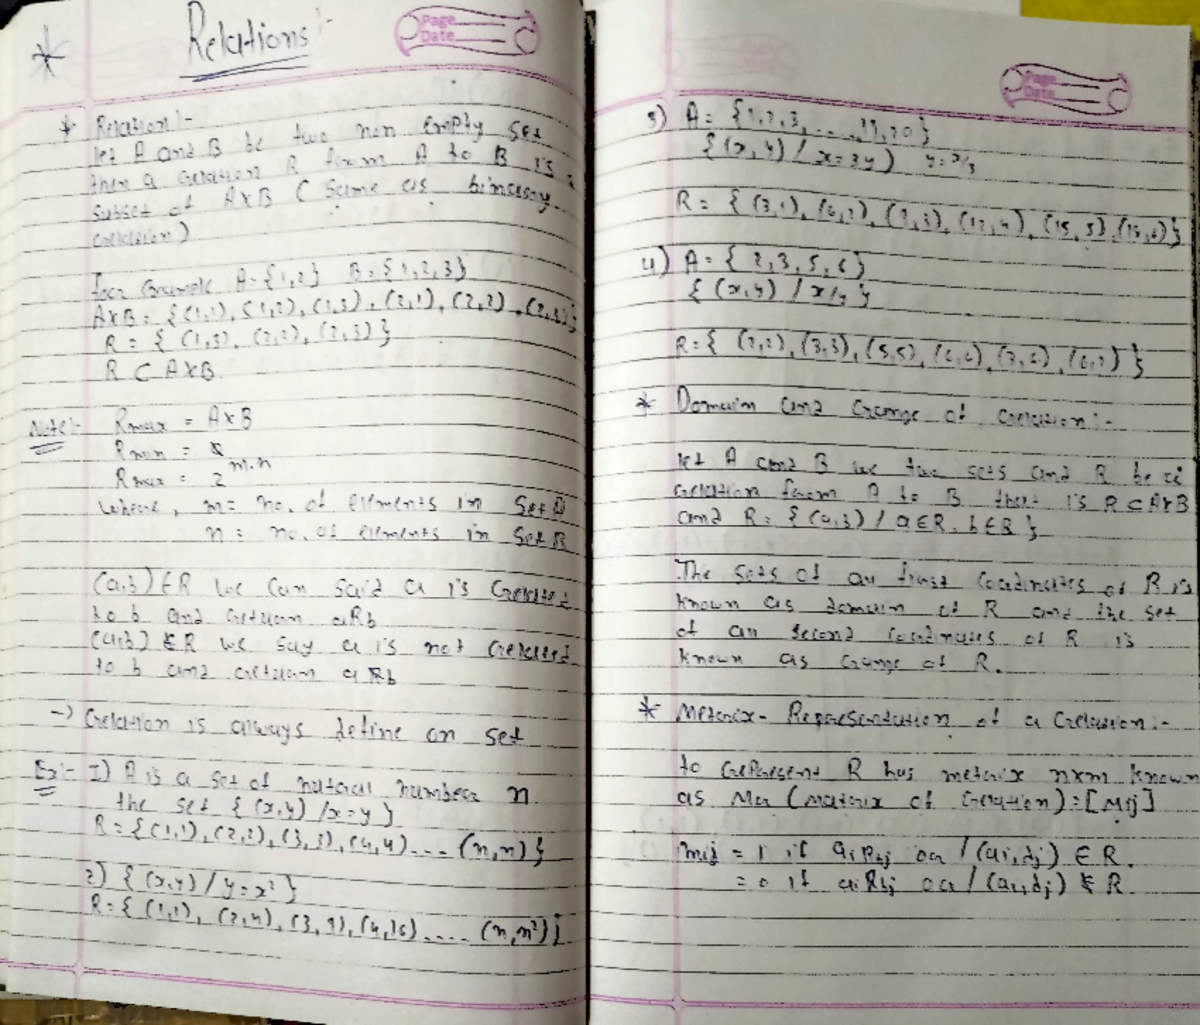 Relations :-
Page
Date
* Relation :-
let A and B be two non empty set
then a relation R from A to B is a
subset of A×B ( same as binary
relation)
for example A = {1,2} B = {1,2,3}
A×B = {(1,1), (1,2), (1,3), (2,1), (2,2), (2,3)}
R = { (1,3), (2,2), (2,3)}
R ⊂ A×B
Note :- Rmax = A×B
Rmin =
Rmax = 2^m.n
where, m = no. of elements in Set
n = no. of elements in Set B
(a,b) ∈ R we can said a is related
to b and return aRb
(a,b) ∉ R we say a is not related
to b and return a R̸ b
→ relation is always define on set
Ex :- 1) A is a set of natural number n.
the set { (x,y) / x=y }
R = {(1,1), (2,2), (3,3), (4,4) .... (n,n)}
2) { (x,y) / y = x² }
R = { (1,1), (2,4), (3,9), (4,16) ..... (n,n²)}
Page
Date
3) A = {1,2,3, ...., 19,20}
{ (x,y) / x=3y) y = x/3
R = { (3,1), (6,2), (9,3), (12,4), (15,5), (18,6)}
4) A = { 2,3,5,6}
{ (x,y) / x/y }
R = { (2,2), (3,3), (5,5), (6,6), (2,6), (6,2) }
* Domain and range of relation :-
let A and B be two sets and R be a
relation from A to B that is R ⊂ A×B
and R = { (a,b) / a∈R, b∈R }
The sets of all first coordinates of R is
known as domain of R and the set
of all second coordinates of R is
known as range of R.
* Metrix - Representation of a relation :-
to represent R has metrix n×m known
as Mr (matrix of relation) = [Mij]
mij = 1 if aiRbj or / (ai,bj) ∈ R.
= 0 if aiR̸bj or / (ai,bj) ∉ R